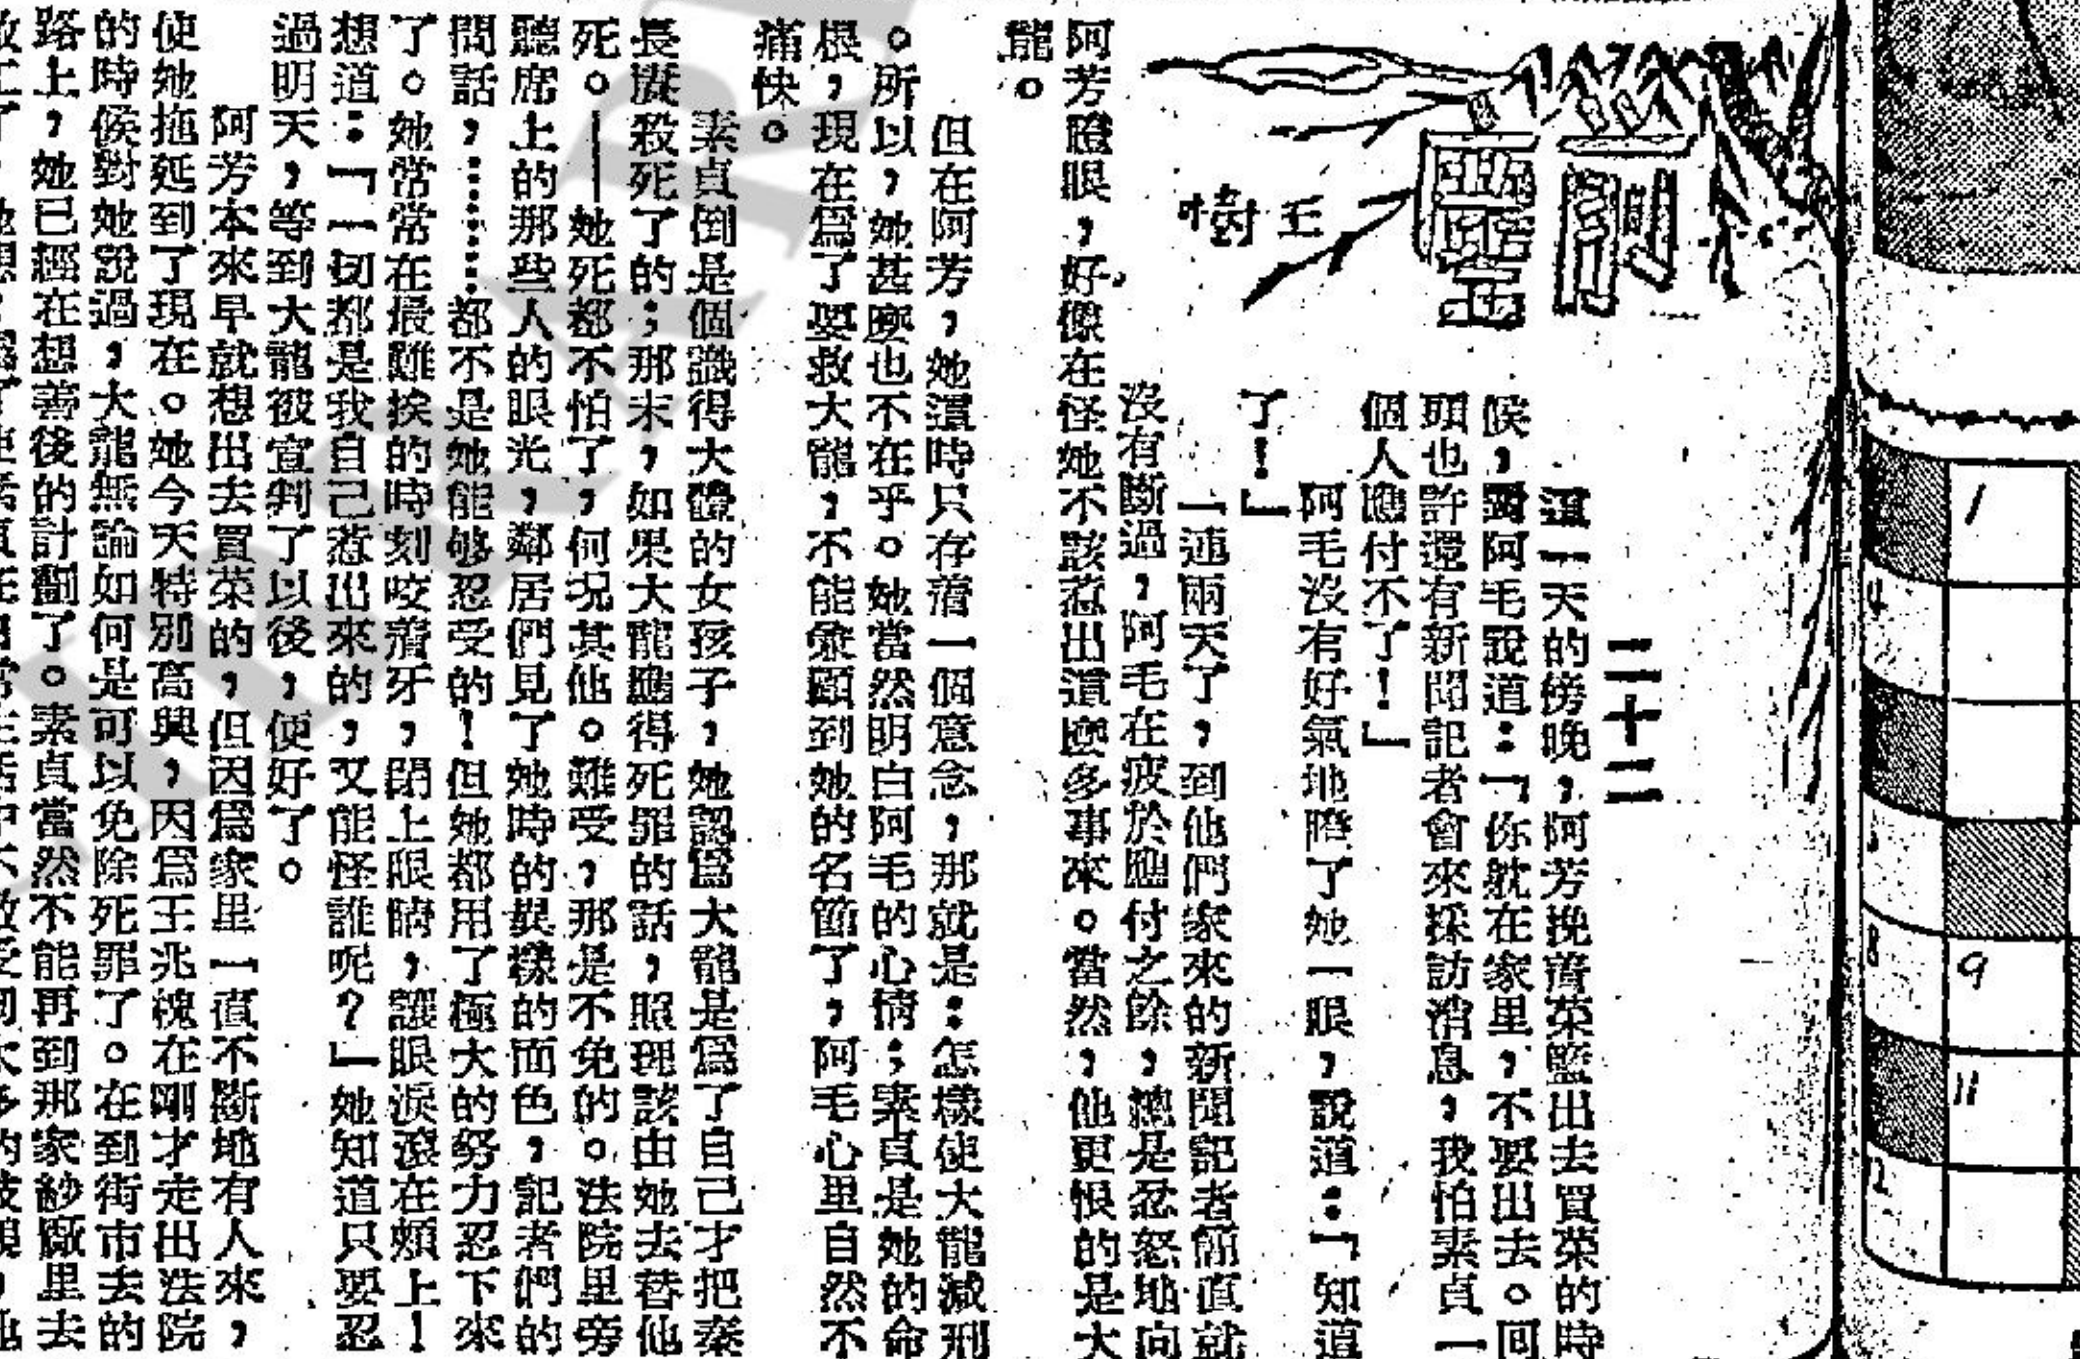 王樹
二十二
這一天的傍晚，阿芳挽着菜籃出去買菜的時
候，對阿毛說道：「你就在家里，不要出去。回
頭也許還有新聞記者會來採訪消息，我怕素貞一
個人應付不了！」
阿毛沒有好氣地瞪了她一眼，說道：「知道
了！」
一連兩天了，到他們家來的新聞記者簡直就
沒有斷過，阿毛在疲於應付之餘，總是忿怒地向
阿芳瞪眼，好像在怪她不該惹出這麼多事來。當然，他更恨的是大
龍。
但在阿芳，她這時只存着一個意念，那就是：怎樣使大龍減刑
。所以，她甚麼也不在乎。她當然明白阿毛的心情；素貞是她的命
根，現在爲了要救大龍，不能兼顧到她的名節了，阿毛心里自然不
痛快。
素貞倒是個識得大體的女孩子，她認爲大龍是爲了自己才把秦
長庚殺死了的；那末，如果大龍應得死罪的話，照理該由她去替他
死。——她死都不怕了，何況其他。難受，那是不免的。法院里旁
聽席上的那些人的眼光，鄰居們見了她時的異樣的面色，記者們的
問話，………都不是她能够忍受的！但她都用了極大的努力忍下來
了。她常常在最難挨的時刻咬着牙，閉上眼睛，讓眼淚滾在頰上！
想道：「一切都是我自己惹出來的，又能怪誰呢？」她知道只要忍
過明天，等到大龍被宣判了以後，便好了。
阿芳本來早就想出去買菜的，但因爲家里一直不斷地有人來，
使她拖延到了現在。她今天特別高興，因爲王兆槐在剛才走出法院
的時候對她說過，大龍無論如何是可以免除死罪了。在到街市去的
路上，她已經在想善後的計劃了。素貞當然不能再到那家紗廠里去
1
4
8
9
11
12